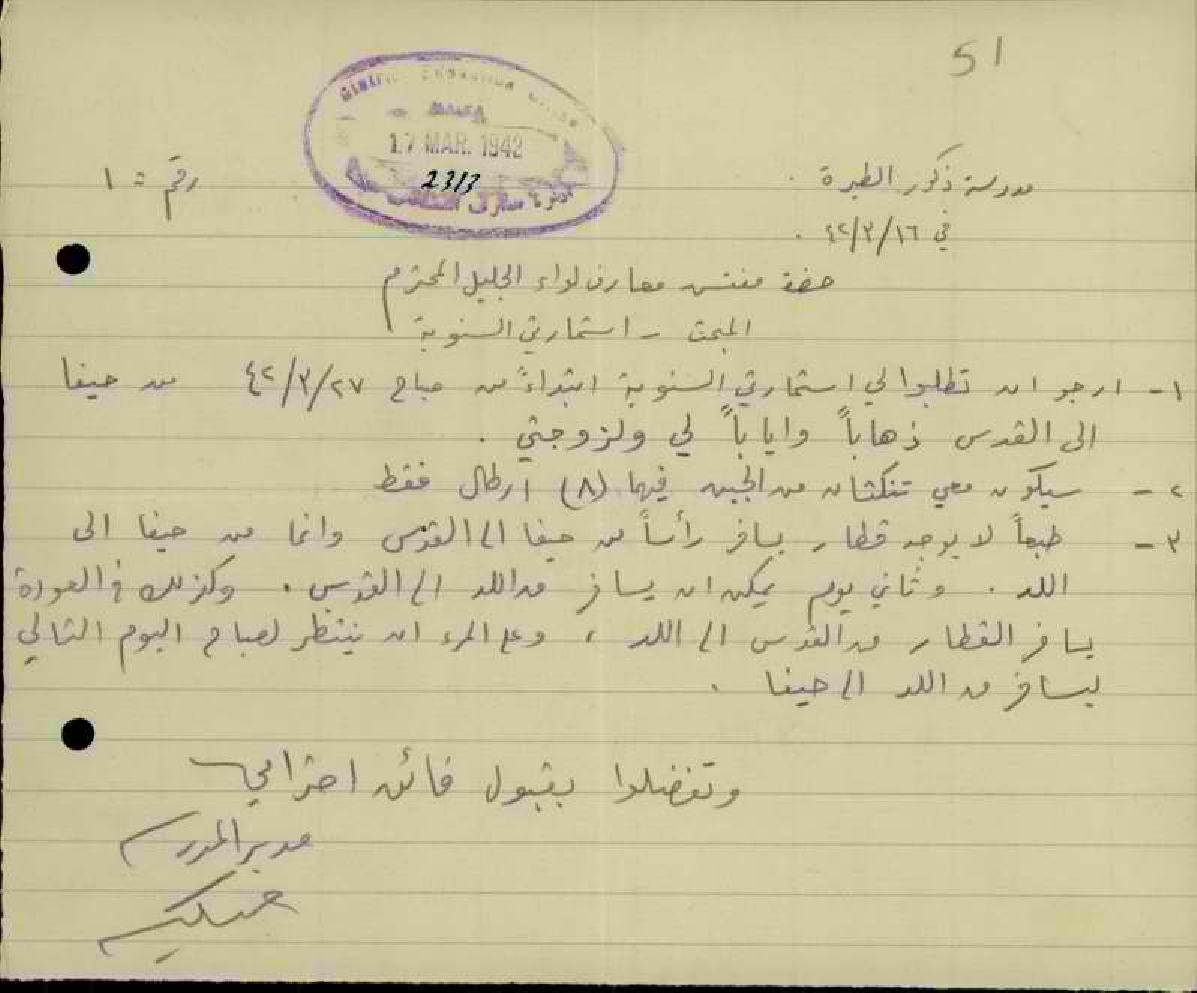 51
DISTRICT EDUCATION OFFICE
17 MAR. 1942
2313
مدرسة ذكور الطيرة . رقم : ١
في ١٦/٣/٤٢ .
حضرة مفتش معارف لواء الجليل المحترم
المبحث - استمارتي السنوية
١- ارجو ان تطلبوا لي استمارتي السنوية ابتداءً من صباح ٢٧/٣/٤٢ من حيفا
الى القدس ذهاباً واياباً لي ولزوجتي .
٢- سيكون معي تنكتان من الجبن فيها (٨) ارطال فقط
٣- طبعاً لا يوجد قطار يسافر رأساً من حيفا الى القدس وانما من حيفا الى
اللد . وثاني يوم يمكن ان يسافر من اللد الى القدس . وكذلك في العودة
يسافر القطار من القدس الى اللد ، وعلى المرء ان ينتظر لصباح اليوم التالي
ليسافر من اللد الى حيفا .
وتفضلوا بقبول فائق احترامي
مدير المدرسة